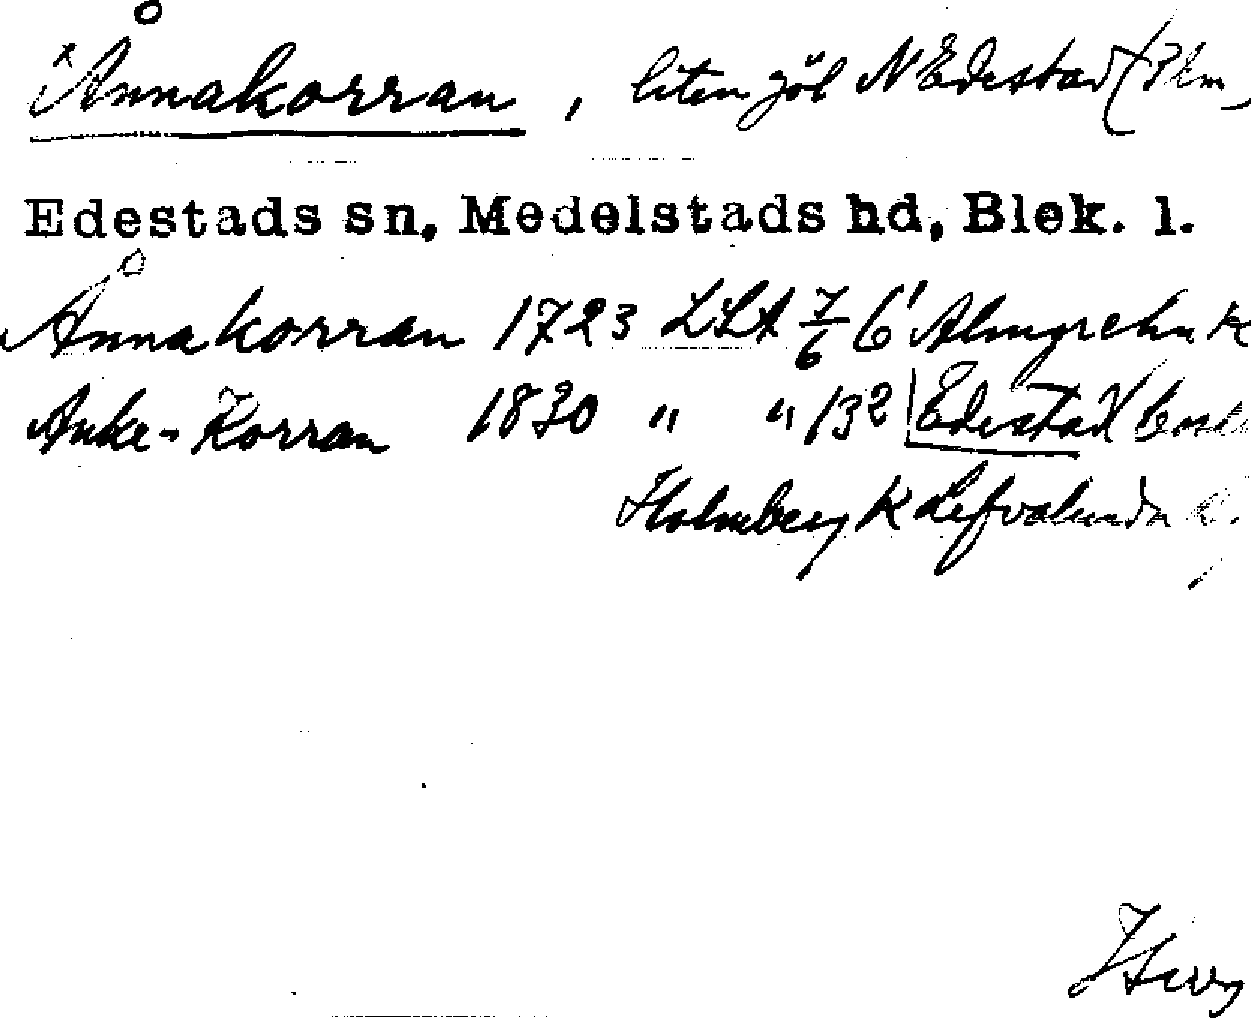 *Ånnakorran, liten göl N Edestad (Plm
Edestads sn, Medelstads hd, Blek. l.
Ånnakorran 1723 LLA 7/6 6' Almgrehn K
Anke-Korran 1830 " " 132 Edestad
Holmberg K